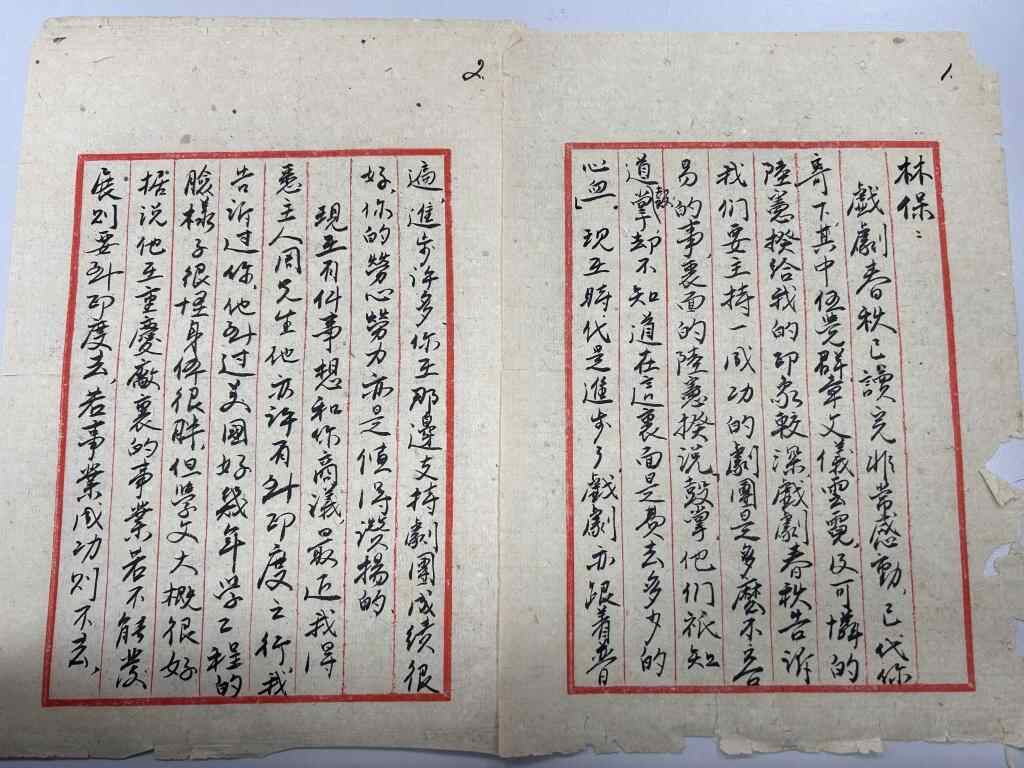 1.
林保：
戲劇春秋已讀完非常感動，已代你
寄下其中伍 群章文儀雲霓，及可憐的
陸憲揆給我的印象較深戲劇春秋告訴
我们要主持一成功的劇團是多麼不容
易的事，裏面的陸憲揆説「鼓掌，他们祇知
道鼓掌却不知道在這裏面是費去多少的
心血」，現在時代是進步了，戲劇亦跟着普
2.
遍，進步許多，你在那邊支持劇團成績很
好，你的勞心勞力亦是值得讚揚的，
現在有件事想和你商議，最近我得
悉主人周先生他亦許有到印度之行，我
告訴过你，他到过美國好幾年学工程的
臉樣子很怪身体很胖，但学文大概很好
据说他在重慶廠裏的事業若不能發
展則要到印度去，若事業成功則不去，